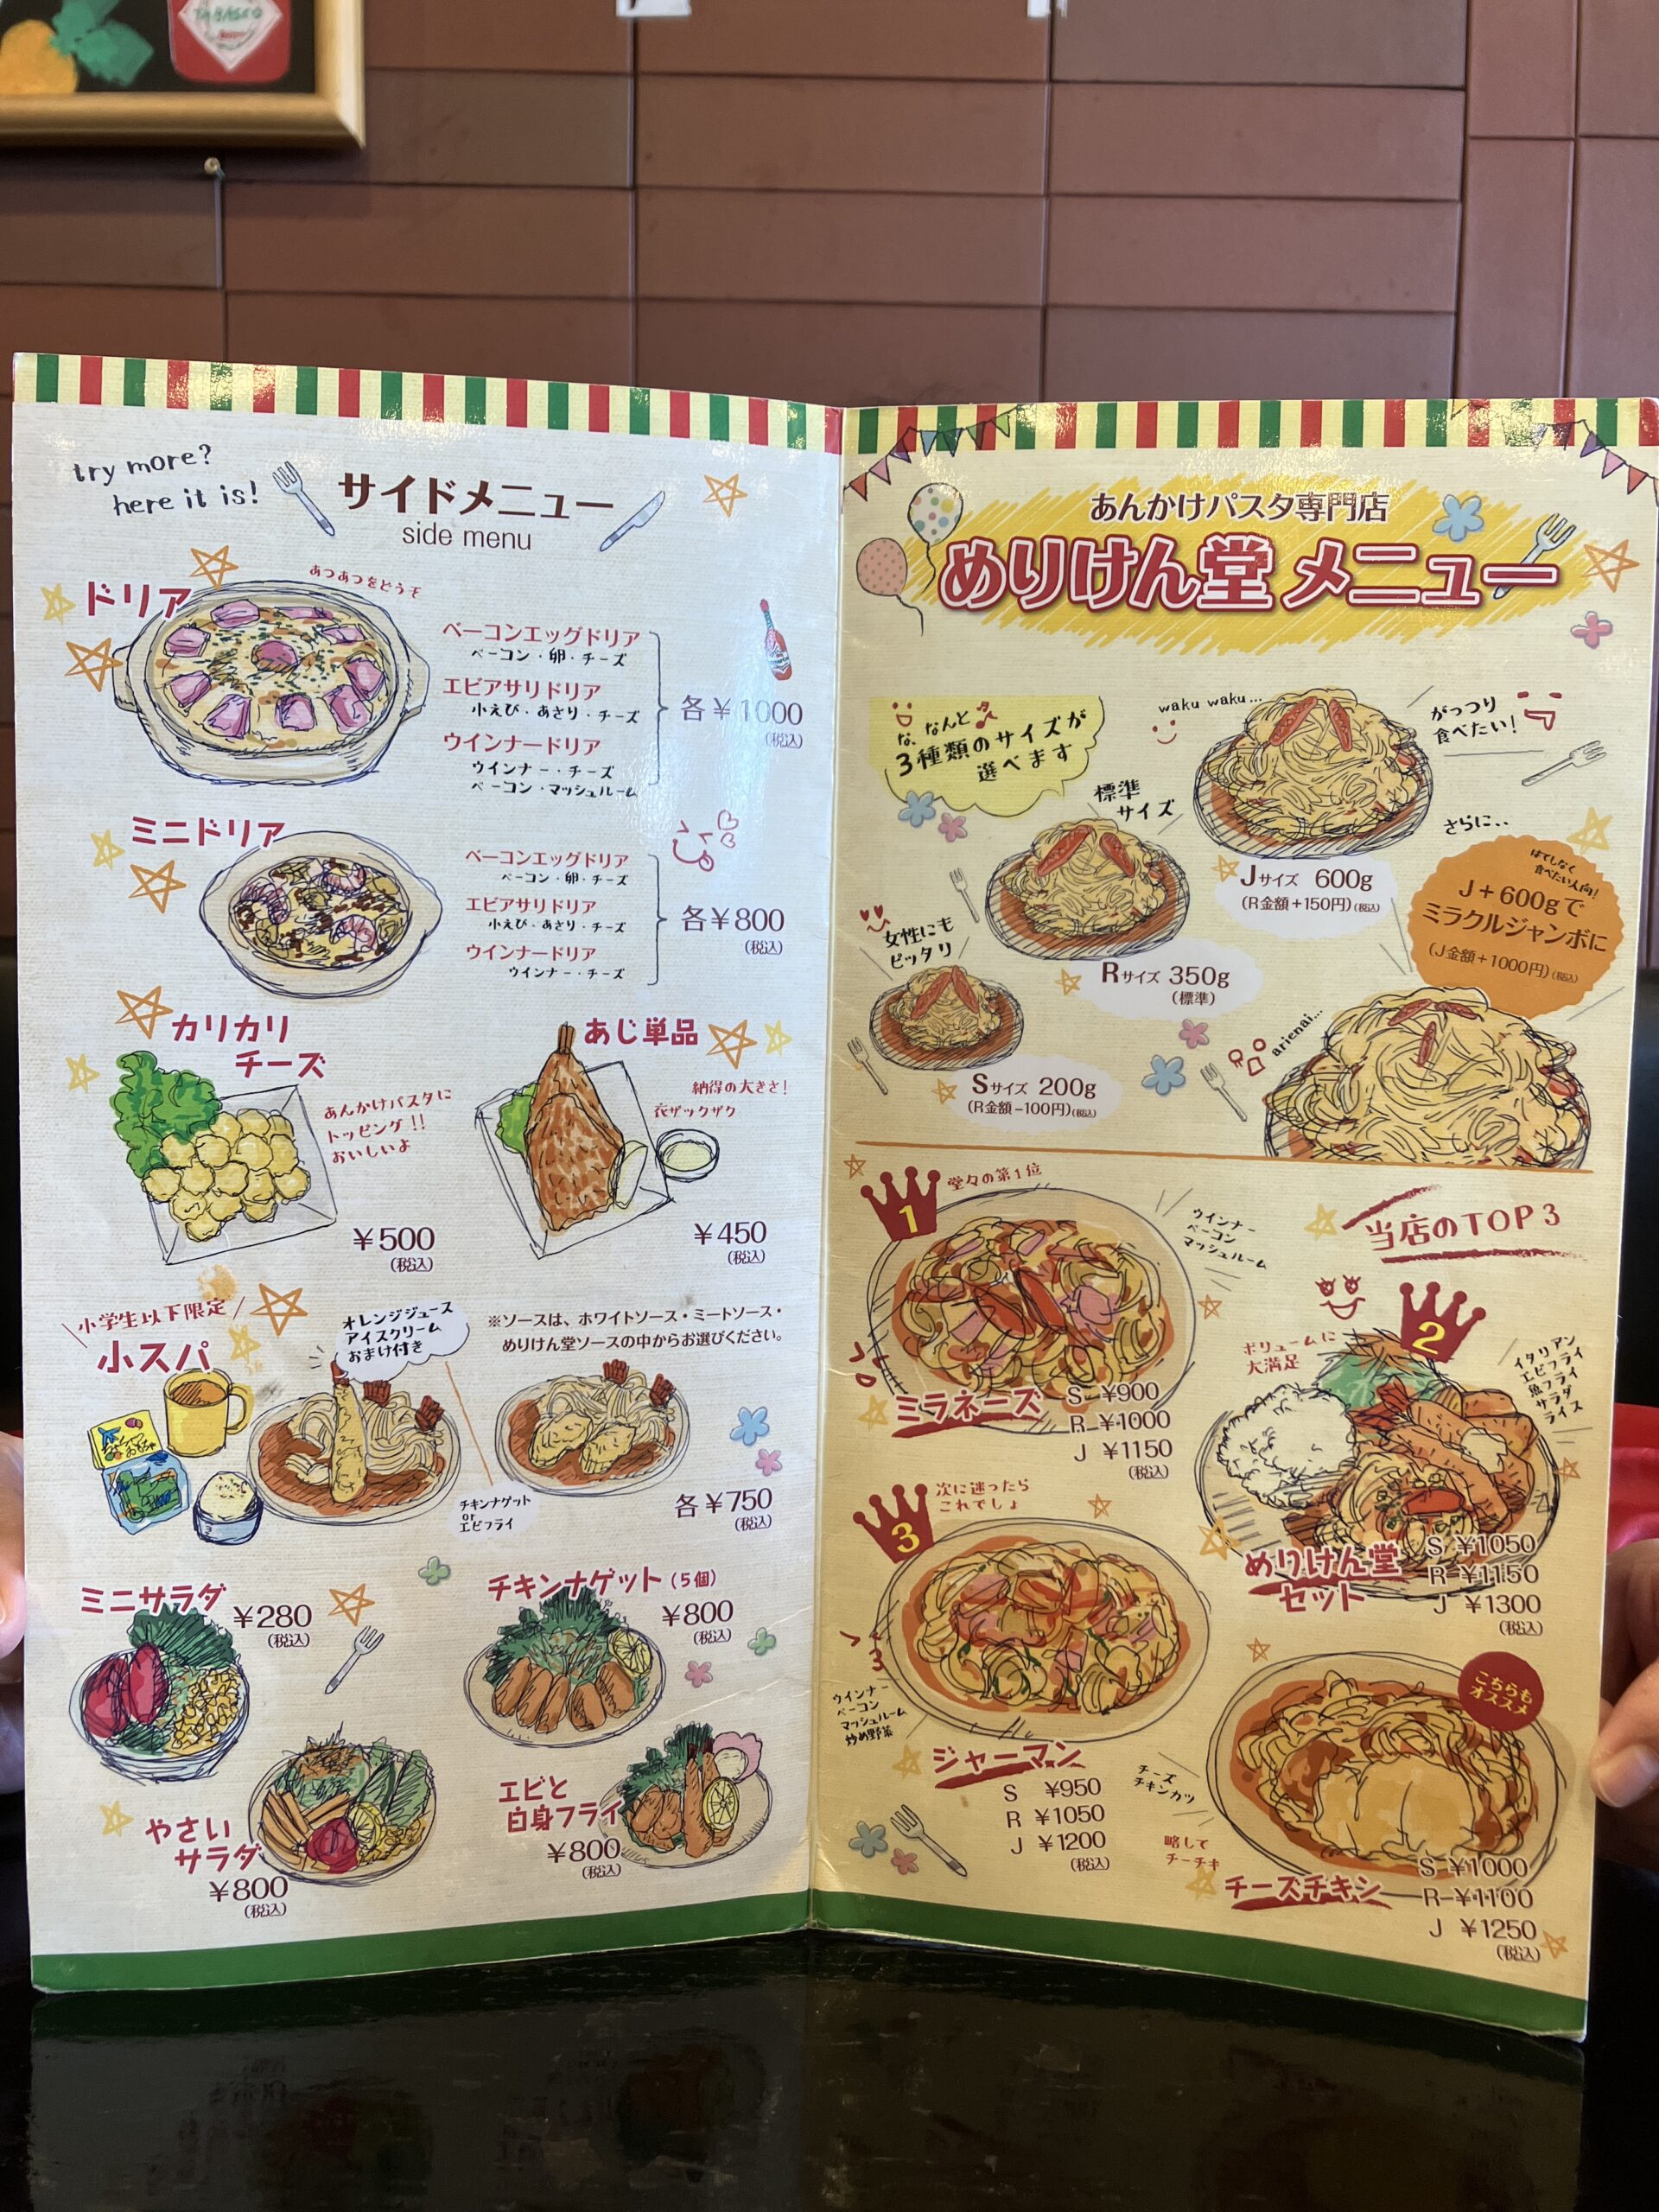 TABASCO
try more?
here it is!
サイドメニュー
side menu
ドリア
あつあつをどうぞ
ベーコンエッグドリア
ベーコン・卵・チーズ
エビアサリドリア
小えび・あさり・チーズ
ウインナードリア
ウインナー・チーズ
ベーコン・マッシュルーム
各¥1000
(税込)
ミニドリア
ベーコンエッグドリア
ベーコン・卵・チーズ
エビアサリドリア
小えび・あさり・チーズ
ウインナードリア
ウインナー・チーズ
各¥800
(税込)
カリカリ
チーズ
あんかけパスタに
トッピング!!
おいしいよ
¥500
(税込)
あじ単品
納得の大きさ!
衣ザックザク
¥450
(税込)
小学生以下限定
小スパ
オレンジジュース
アイスクリーム
おまけ付き
※ソースは、ホワイトソース・ミートソース・
めりけん堂ソースの中からお選びください。
チキンナゲット
or
エビフライ
各¥750
(税込)
ミニサラダ
¥280
(税込)
チキンナゲット(5個)
¥800
(税込)
やさい
サラダ
¥800
(税込)
エビと
白身フライ
¥800
(税込)
あんかけパスタ専門店
めりけん堂 メニュー
な、なんと
3種類のサイズが
選べます
waku waku...
がっつり
食べたい!
標準
サイズ
Jサイズ 600g
(R金額+150円)(税込)
さらに..
はてしなく
食べたい人向!
J+600gで
ミラクルジャンボに
(J金額+1000円)(税込)
女性にも
ピッタリ
Rサイズ 350g
(標準)
arienai...
Sサイズ 200g
(R金額-100円)(税込)
1
堂々の第1位
ウインナー
ベーコン
マッシュルーム
当店のTOP3
ミラネーズ
S ¥900
R ¥1000
J ¥1150
(税込)
2
ボリュームに
大満足
イタリアン
エビフライ
魚フライ
サラダ
ライス
めりけん堂
セット
S ¥1050
R ¥1150
J ¥1300
(税込)
3
次に迷ったら
これでしょ
ウインナー
ベーコン
マッシュルーム
炒め野菜
ジャーマン
S ¥950
R ¥1050
J ¥1200
(税込)
こちらも
オススメ
チーズ
チキンカツ
略して
チーチキ
チーズチキン
S ¥1000
R ¥1100
J ¥1250
(税込)